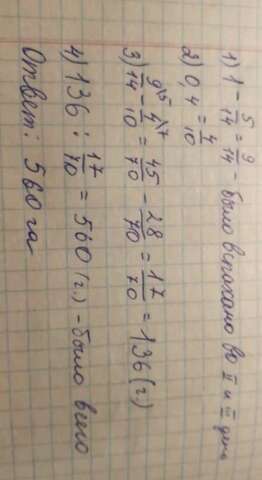 1) 1 - 5/14 = 9/14 - было вспахано во II и III день
2) 0,4 = 4/10
3) 9/14 \5 - 4/10 \7 = 45/70 - 28/70 = 17/70 = 136 (г)
4) 136 : 17/70 = 560 (г.) - было всего
Ответ: 560 га